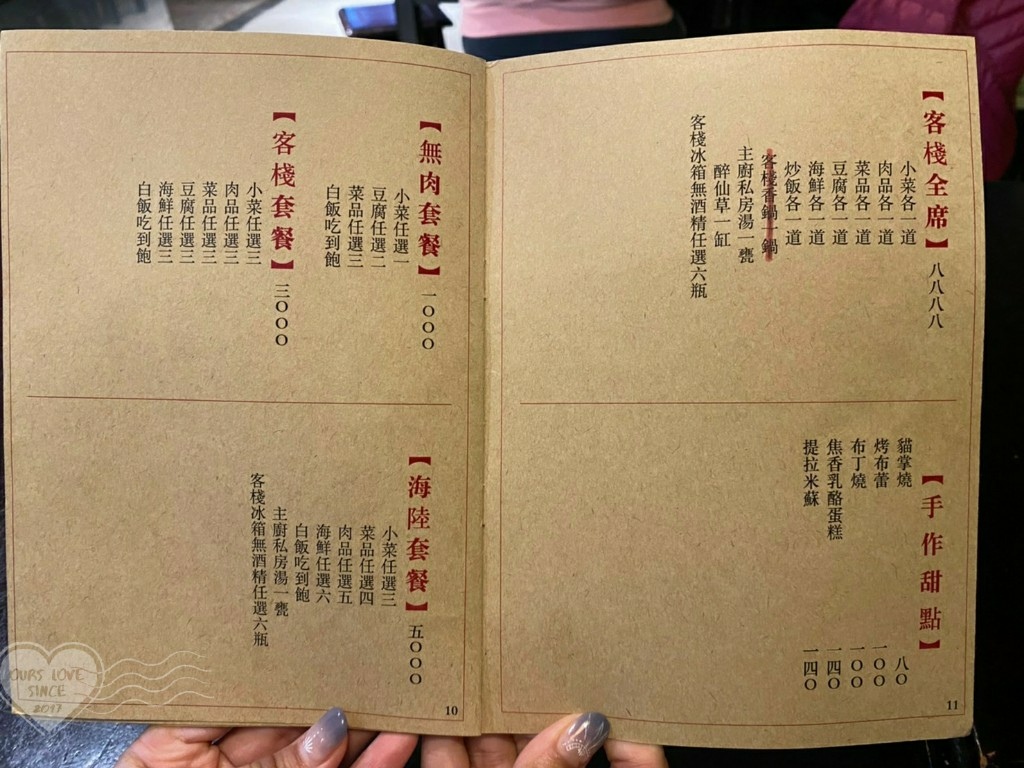 【客棧全席】八八八八
小菜各一道
肉品各一道
菜品各一道
豆腐各一道
海鮮各一道
炒飯各一道
客棧香鍋一鍋
主廚私房湯一甕
醉仙草一缸
客棧冰箱無酒精任選六瓶
【手作甜點】
貓掌燒 八〇
烤布蕾 一〇〇
布丁燒 一〇〇
焦香乳酪蛋糕 一四〇
提拉米蘇 一四〇
11
【無肉套餐】一〇〇〇
小菜任選一
豆腐任選二
菜品任選三
白飯吃到飽
【客棧套餐】三〇〇〇
小菜任選三
肉品任選三
菜品任選三
豆腐任選三
海鮮任選三
白飯吃到飽
【海陸套餐】五〇〇〇
小菜任選三
菜品任選四
肉品任選五
海鮮任選六
白飯吃到飽
主廚私房湯一甕
客棧冰箱無酒精任選六瓶
10
OURS LOVE
SINCE
2017